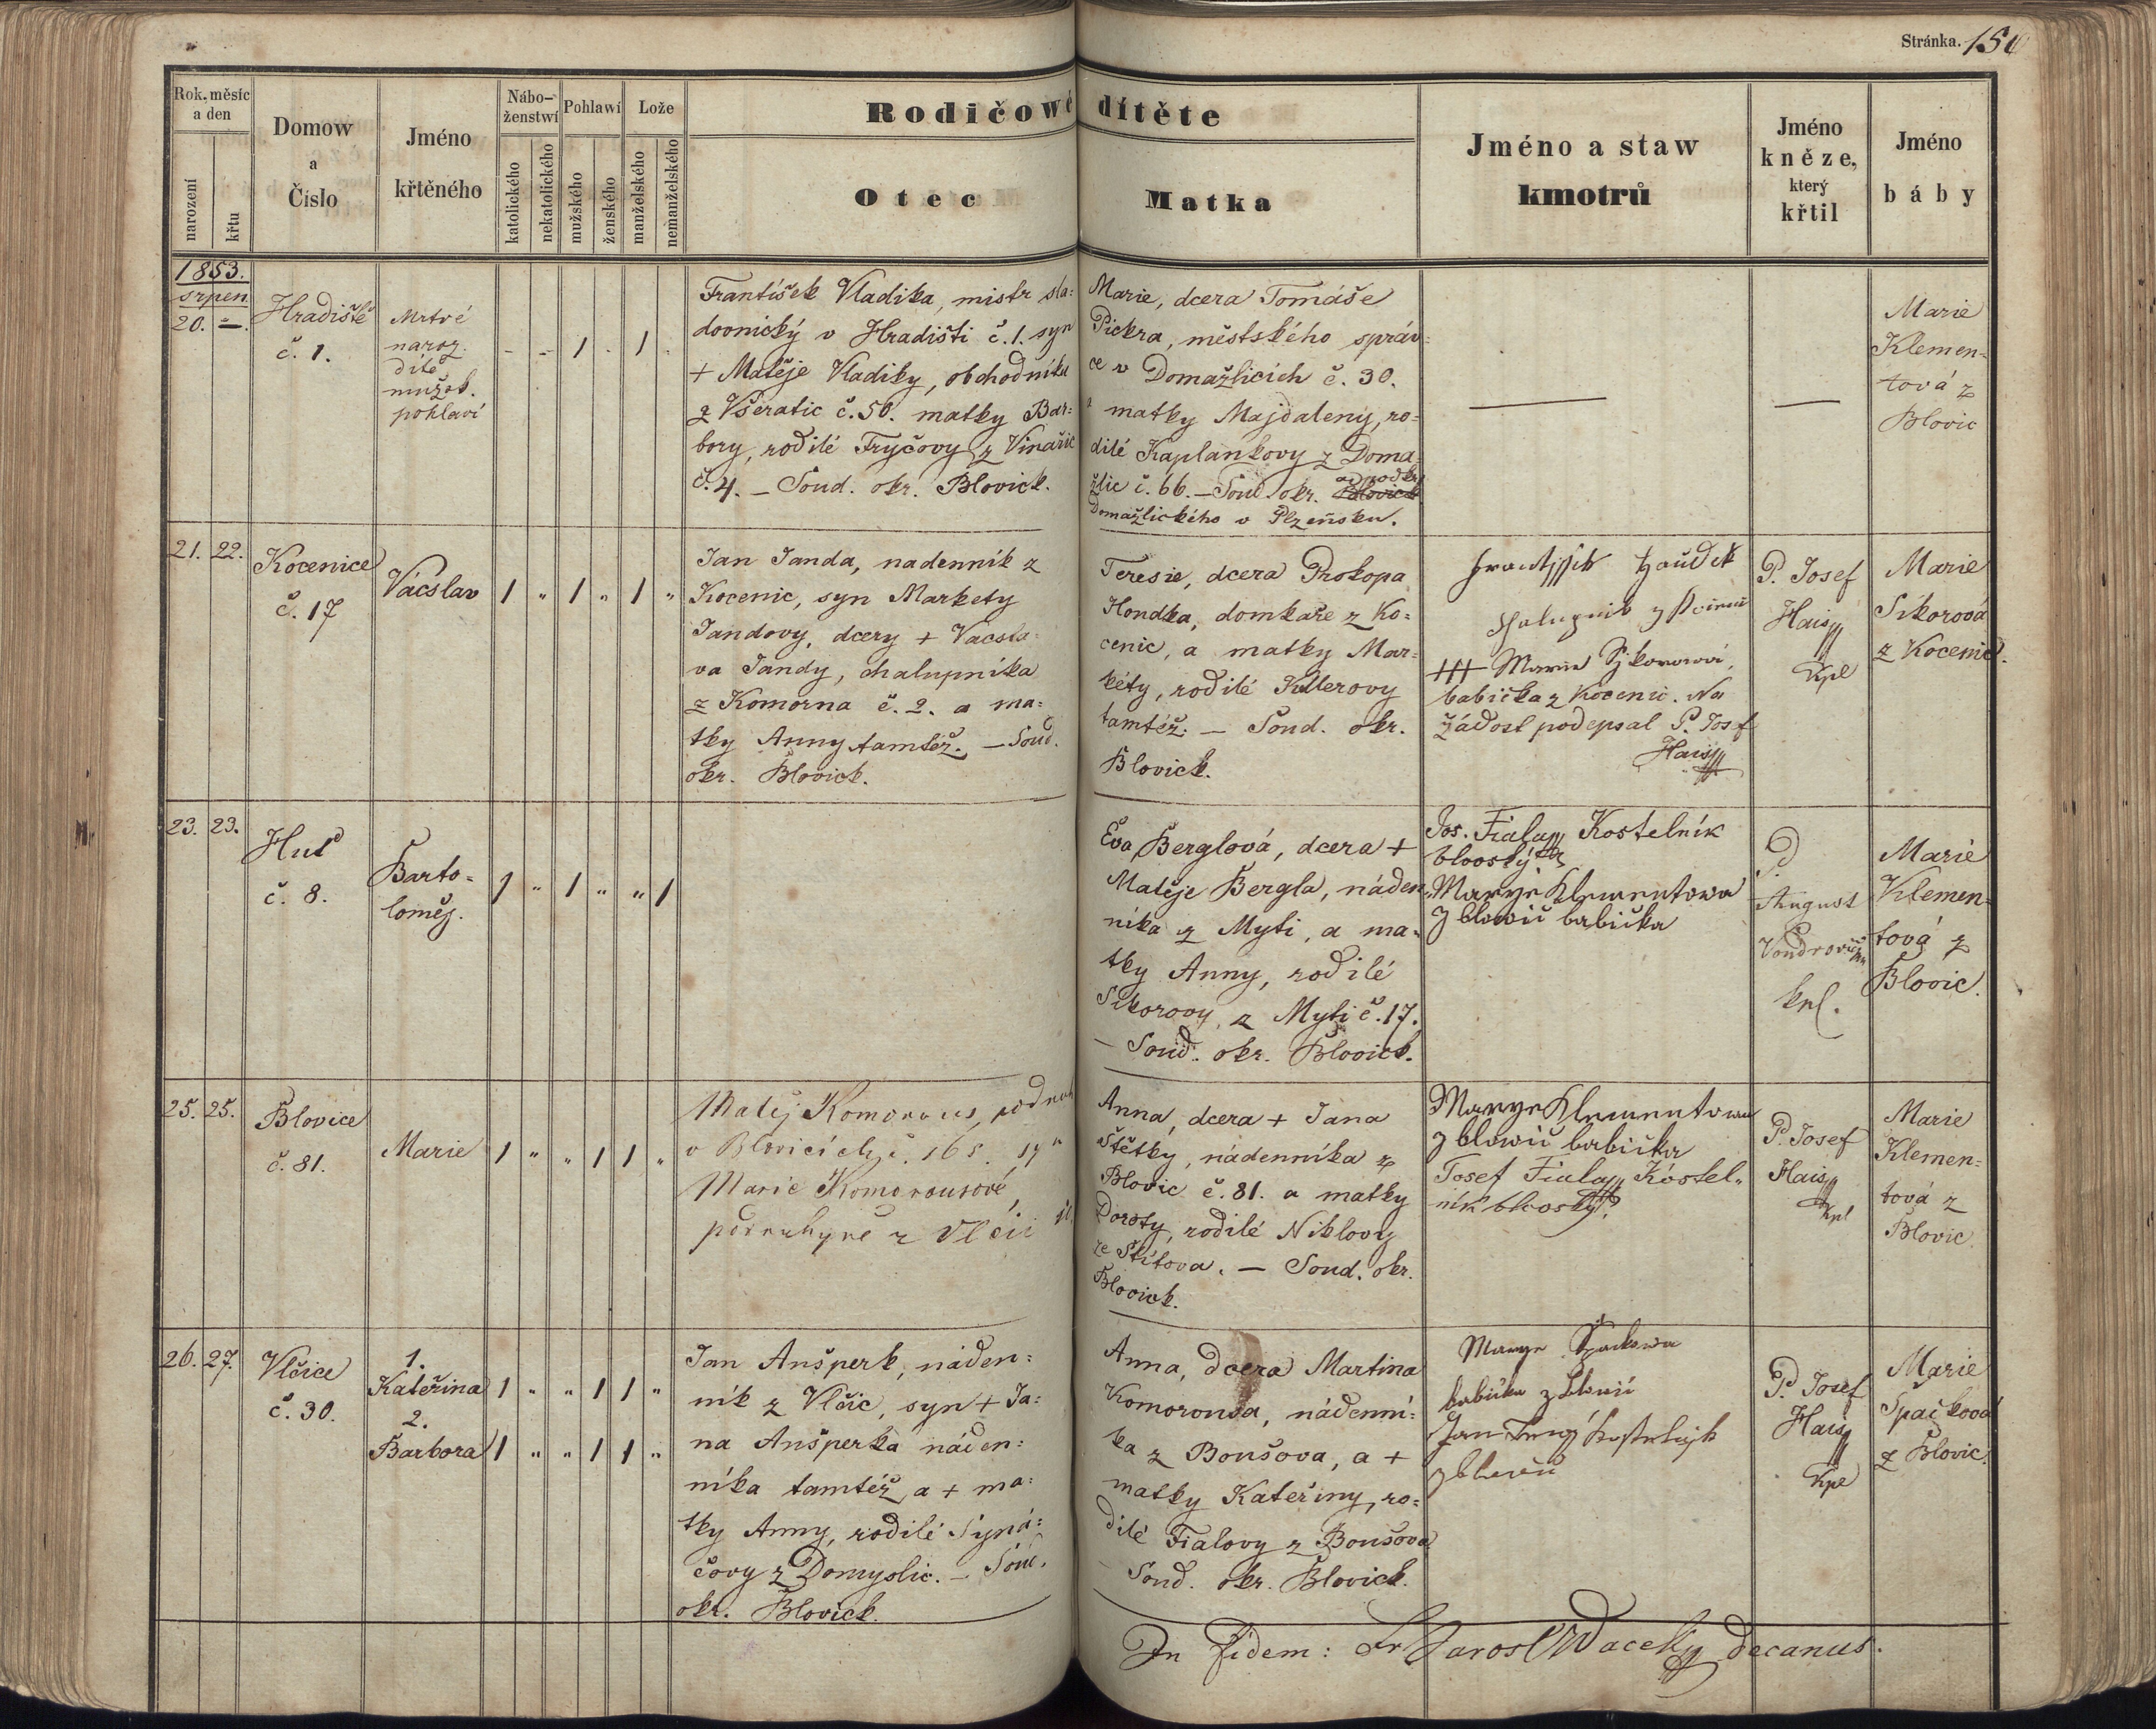 Stránka. 150
Rok, měsíc
a den
narození
křtu
Domow
a
Číslo
Jméno
křtěného
Nábo-
ženstwí
katolického
nekatolického
Pohlawí
mužského
ženského
Lože
manželského
nemanželského
Rodičowé dítěte
Otec
Matka
Jméno a staw
kmotrů
Jméno
kněze,
který
křtil
Jméno
báby
1853.
srpen.
20. —.
Hradiště
č. 1.
Mrtvé
naroz.
dítě
mužsk.
pohlaví
1 1
František Vladika, mistr sla:
dovnický v Hradišti č. 1. syn
+ Matěje Vladiky, obchodníka
z Všeratic č. 50. matky Bar:
bory, rodilé Fryčovy z Vinařic
č. 4. — Soud. okr. Blovick.
Marie, dcera Tomáše
Pickra, městského správ:
ce v Domažlicích č. 30.
a matky Majdaleny, ro:
dilé Kaplankovy z Doma:
žlic č. 66. — Soud. okr. Blovick
Domažlického v Plzeňsku.
Marie
Klemen-
tová z
Blovic
21. 22.
Kocenice
č. 17
Vácslav
1 " 1 " 1 "
Jan Janda, nadenník z
Kocenic, syn Markety
Jandovy, dcery + Vacsla:
va Jandy, chalupníka
z Komorna č. 2. a ma:
tky Anny tamtéž. — Soud.
okr. Blovick.
Teresie, dcera Prokopa
Hondka, domkaře z Ko:
cenic, a matky Mar:
kéty, rodilé Kellerovy
tamtéž. — Soud. okr.
Blovick.
+++ Marie Sykorowá,
babička z Kocenic. Na
žádost podepsal P. Josef
Hais
P. Josef
Hais
Kpl
Marie
Sikorová
z Kocenic.
23. 23.
Huť
č. 8.
Barto-
loměj.
1 " 1 " " 1
Eva Berglová, dcera +
Matěje Bergla, náden
níka z Myti, a ma:
tky Anny, rodilé
Sikorovy, z Myti č. 17.
— Soud. okr. Blovick.
Jos. Fiala Kostelník
blovský
Marye Klementowa
z blowic babička
P.
August
Vondrovic
kpl.
Marie
Klemen-
tová z
Blovic.
25. 25.
Blovice
č. 81.
Marie
1 " " 1 1 "
Matěj Komorous, podruh
v Blovicích č. 165. syn
Marie Komorousové,
podruhyně z Vlčic
Anna, dcera + Jana
Štětky, nádenníka z
Blovic č. 81. a matky
Doroty, rodilé Niklovy
ze Štítova. — Soud. okr.
Blovick.
Marye Klementowa
z blowic babička
Josef Fiala Kostel„
ník blovský.
P. Josef
Hais
Kpl
Marie
Klemen-
tová z
Blovic
26. 27.
Vlčice
č. 30.
1.
Kateřina
1 " " 1 1 "
2.
Barbora
1 " " 1 1 "
Jan Anšperk, náden:
ník z Vlčic, syn + Ja:
na Anšperka náden:
níka tamtéž, a + ma:
tky Anny, rodilé Syná:
čovy z Domyslic. — Soud.
okr. Blovick.
Anna, dcera Martina
Komorousa, nádenní:
ka z Bousova, a +
matky Kateřiny, ro:
dilé Fialovy z Boušova
— Soud. okr. Blovick.
Marye Špačkowa
babička z blowic
P. Josef
Hais
Kpl
Marie
Špačková
z Blovic.
In fidem: Fr Jarosl Wacek decanus.